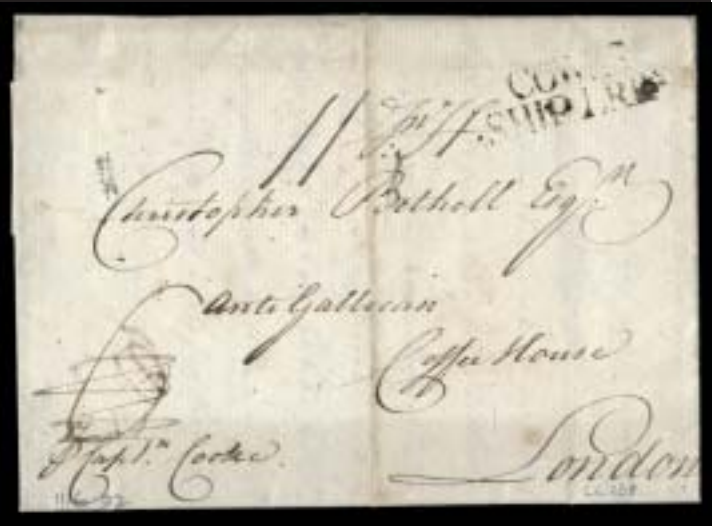 SHIP LRE
11
Christopher Bethell Esqr
Anti Gallican
Coffee House
London
Capt.n Cooke.